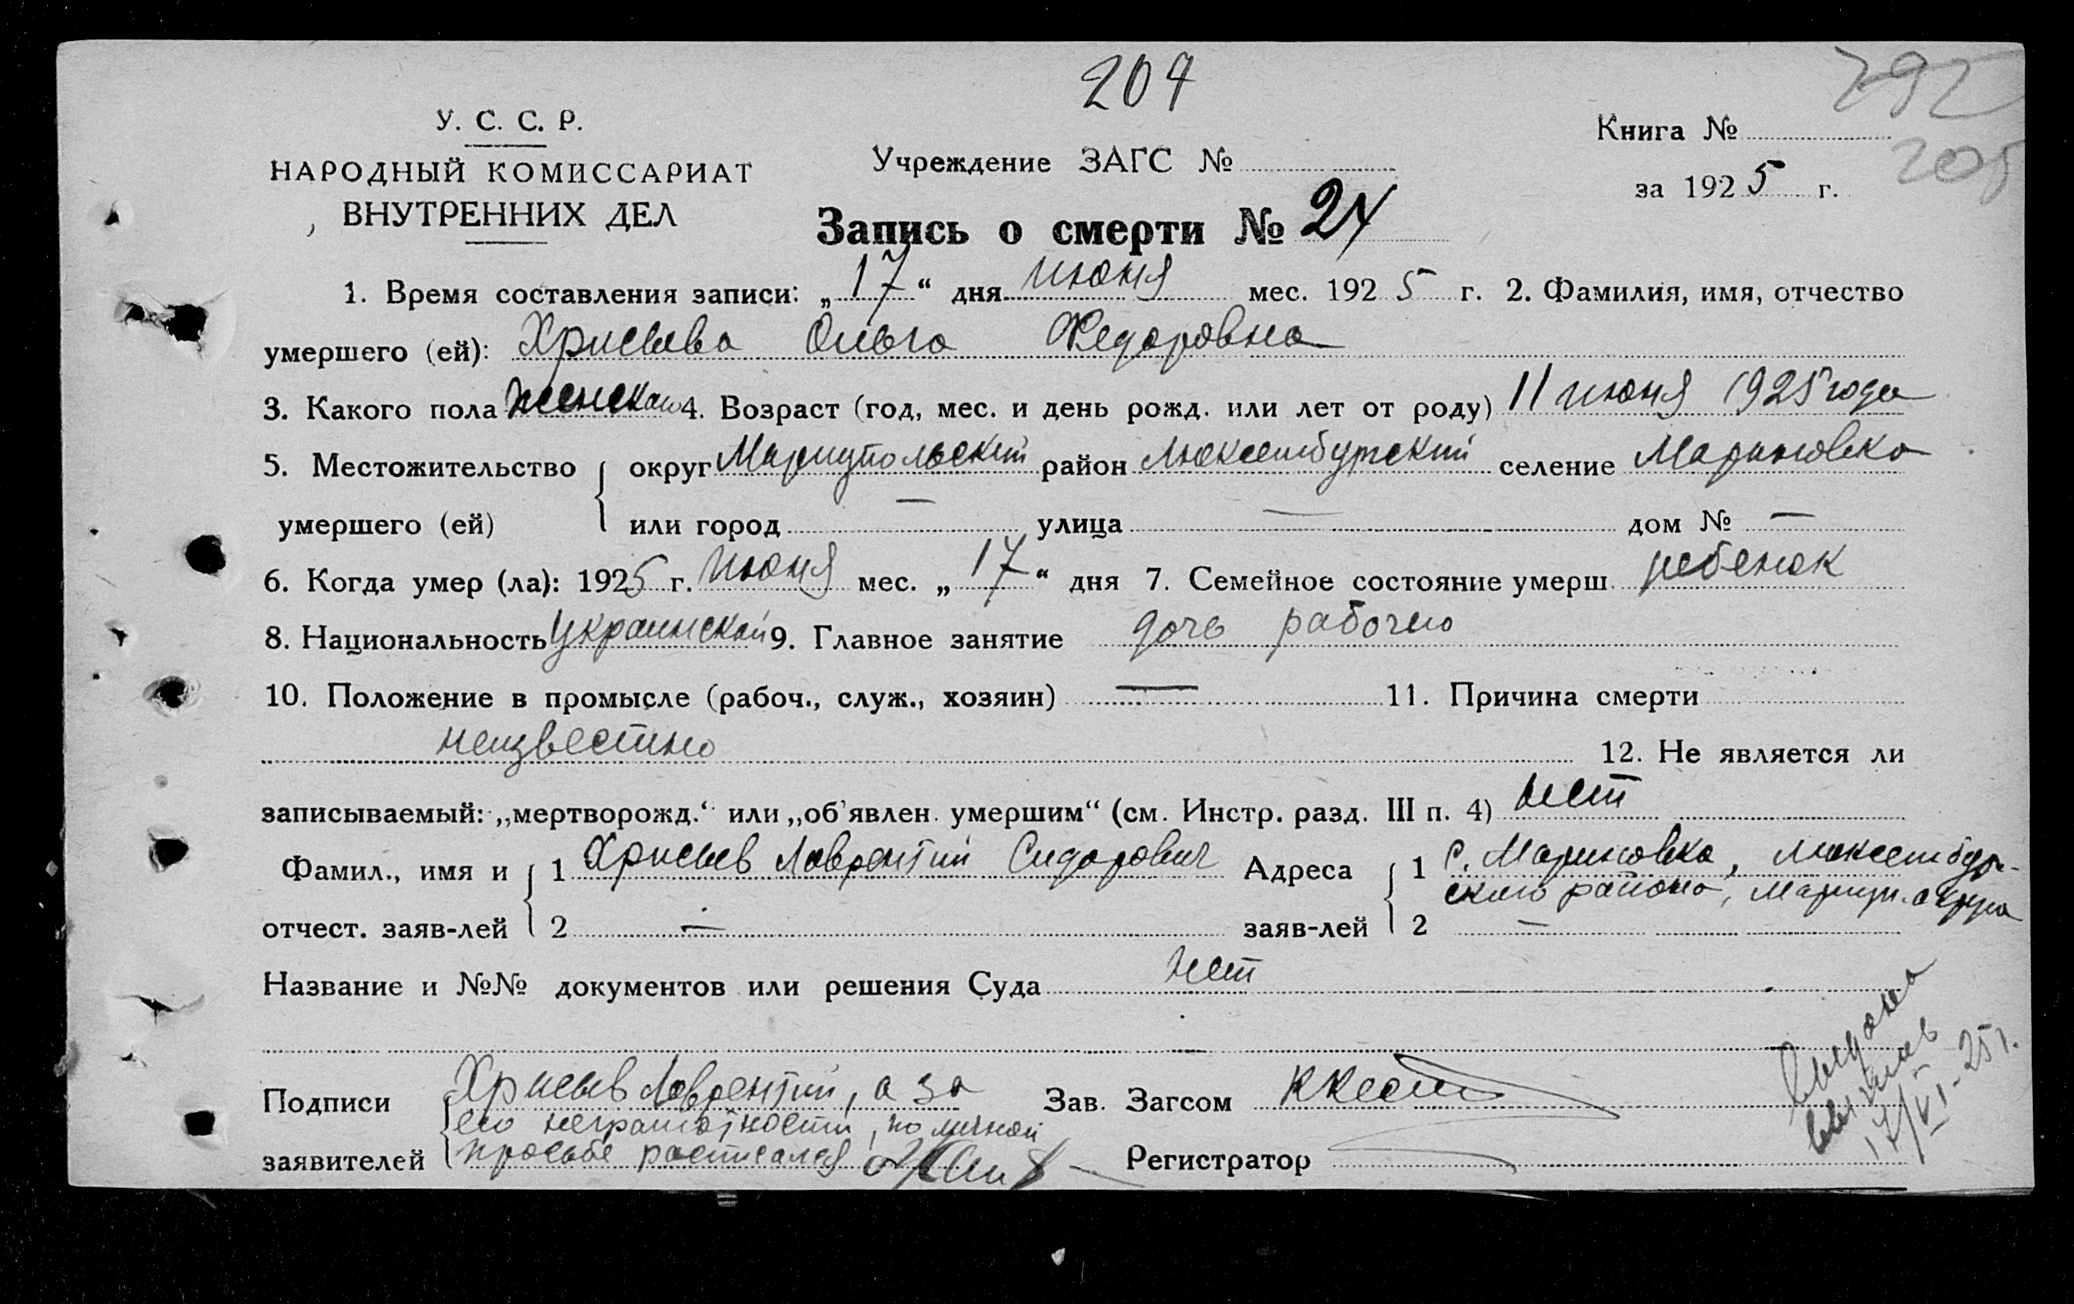 204
292
205
У. С. С. Р.
НАРОДНЫЙ КОМИССАРИАТ
ВНУТРЕННИХ ДЕЛ
Учреждение ЗАГС №
Книга №
за 1925 г.
Запись о смерти № 24
1. Время составления записи: „17“ дня июня мес. 1925 г. 2. Фамилия, имя, отчество
умершего (ей): Ольга Федоровна
3. Какого пола женскаго 4. Возраст (год, мес. и день рожд. или лет от роду) 11 июня 1925 года
5. Местожительство округ Мариупольский район Люксембургский селение Мариновка
умершего (ей) или город — улица — дом № —
6. Когда умер (ла): 1925 г. июня мес. „17“ дня 7. Семейное состояние умерш. ребенок
8. Национальность украинской 9. Главное занятие дочь рабочего
10. Положение в промысле (рабоч., служ., хозяин) — 11. Причина смерти
неизвестно 12. Не является ли
записываемый: „мертворожд.“ или „об'явлен. умершим“ (см. Инстр. разд. III п. 4) нет
Фамил., имя и 1 Лаврентий Сидорович Адреса 1 с. Мариновка, Люксембург-
ского района, Мариуп. округа
отчест. заяв-лей 2 — заяв-лей 2 —
Название и №№ документов или решения Суда нет
Подписи Лаврентий, а за Зав. Загсом
его неграмотности, по личной
заявителей просьбе расписался Регистратор
Выдана
выпись
17/VI-25г.